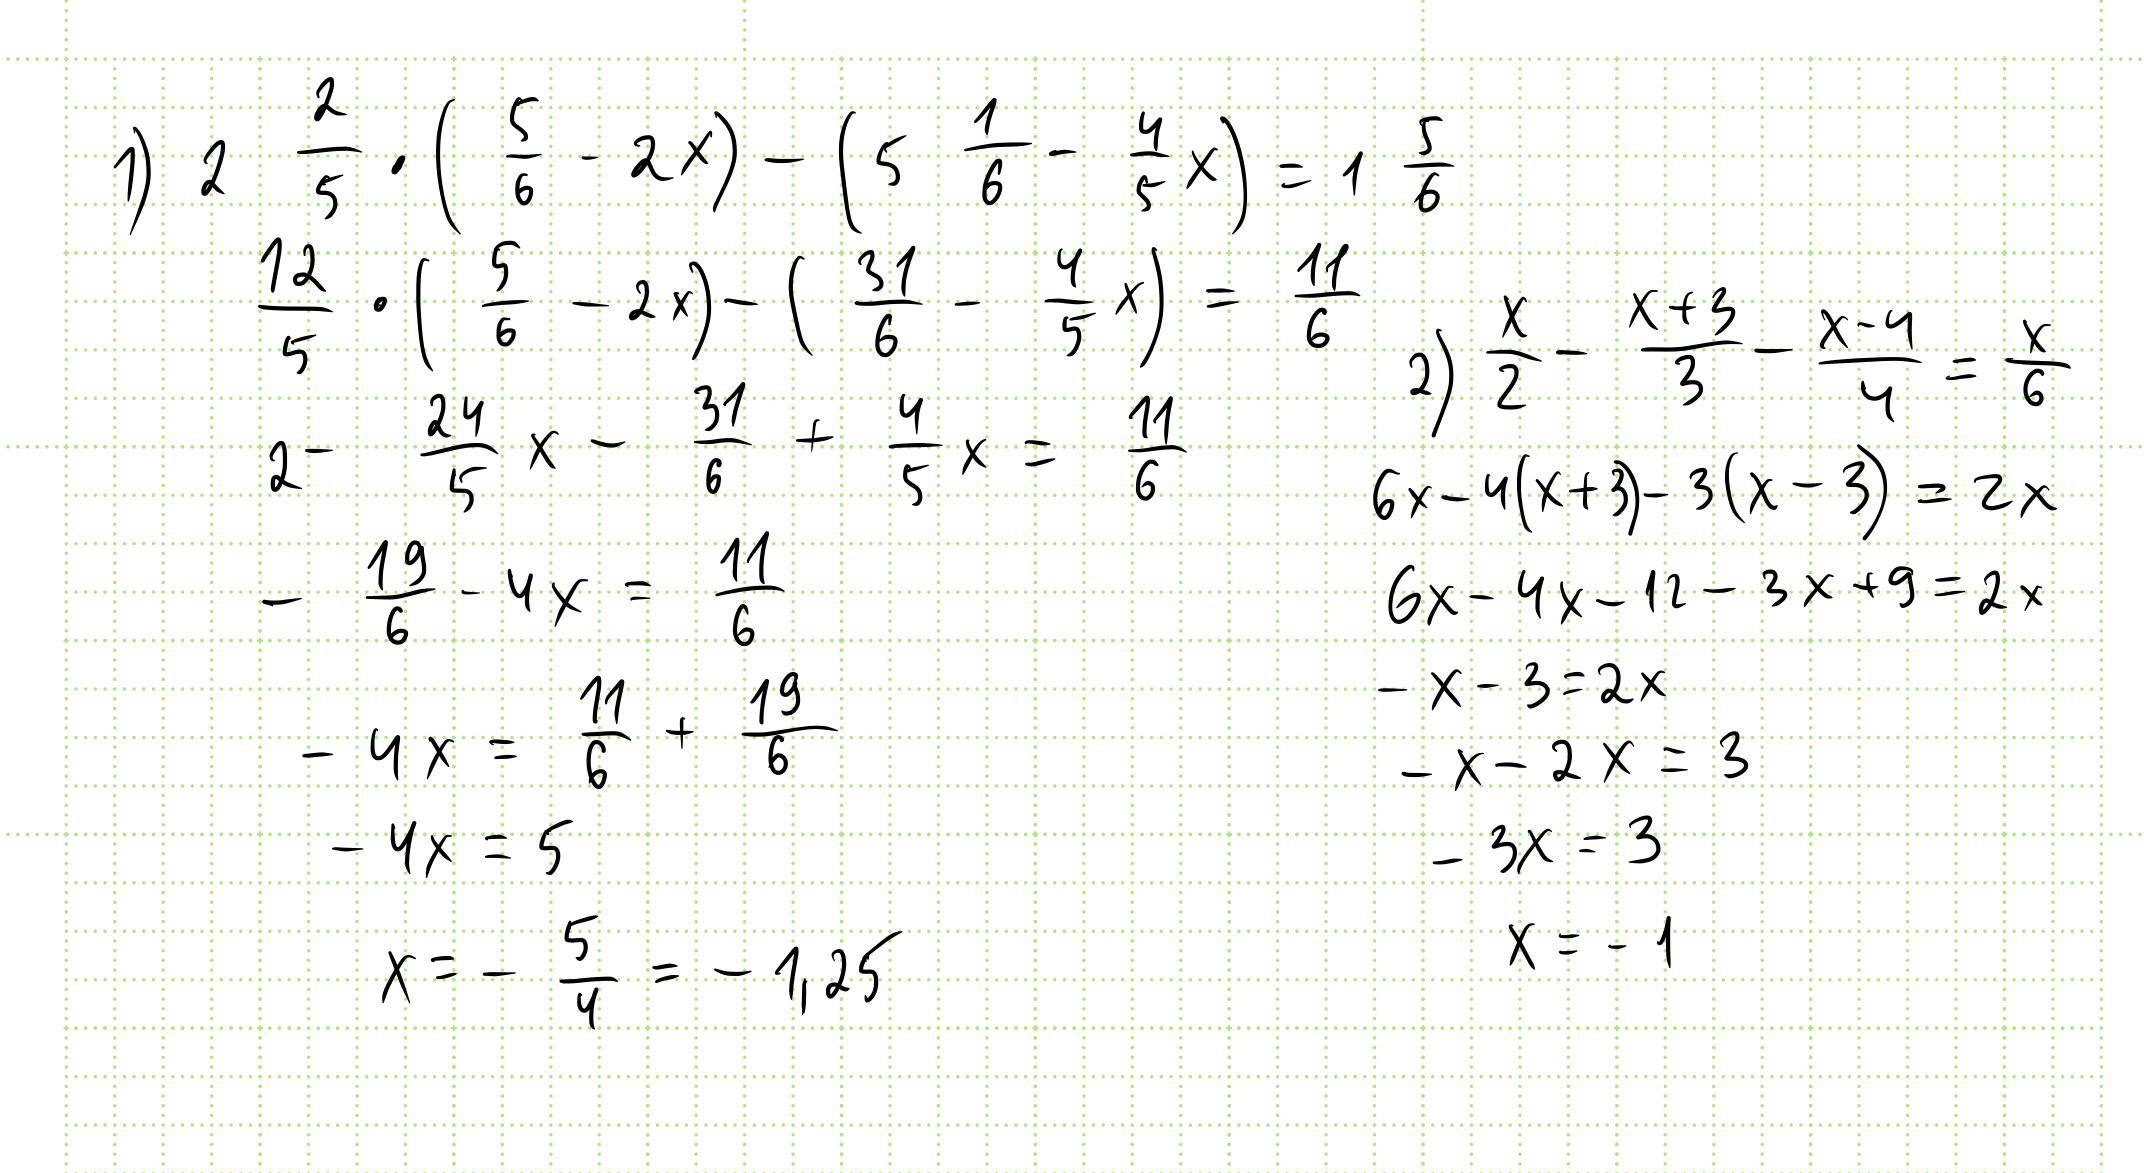 1) 2 2/5 • (5/6 - 2x) - (5 1/6 - 4/5 x) = 1 5/6
12/5 • (5/6 - 2x) - (31/6 - 4/5 x) = 11/6
2 - 24/5 x - 31/6 + 4/5 x = 11/6
- 19/6 - 4x = 11/6
- 4x = 11/6 + 19/6
- 4x = 5
x = - 5/4 = - 1,25
2) x/2 - (x+3)/3 - (x-4)/4 = x/6
6x - 4(x+3) - 3(x-3) = 2x
6x - 4x - 12 - 3x + 9 = 2x
- x - 3 = 2x
- x - 2x = 3
- 3x = 3
x = - 1